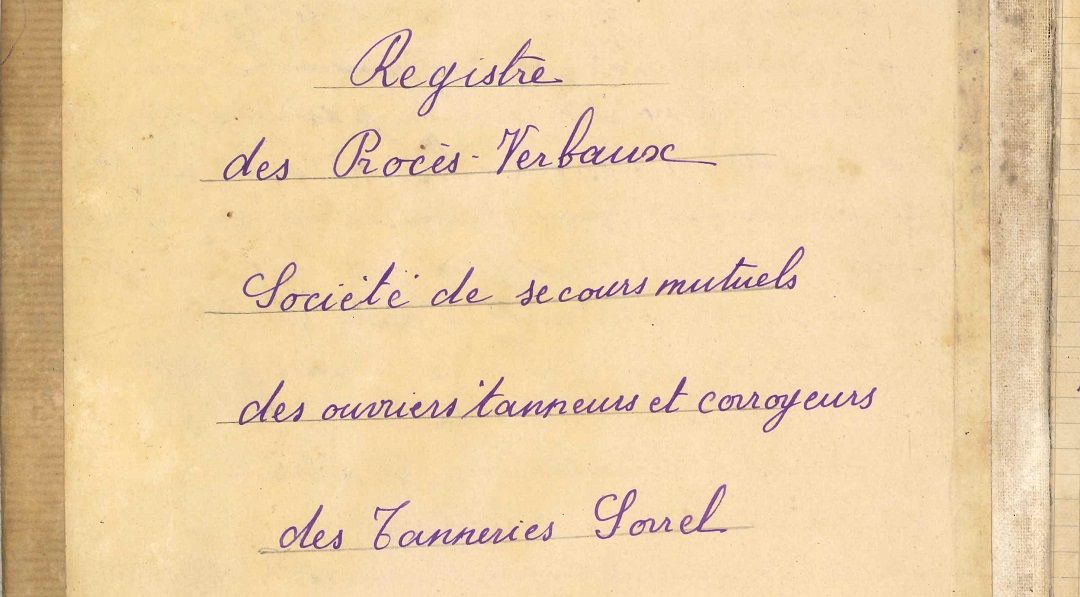 Registre
des Procès-Verbaux
Société de secours mutuels
des ouvriers tanneurs et corroyeurs
des Tanneries Sorrel